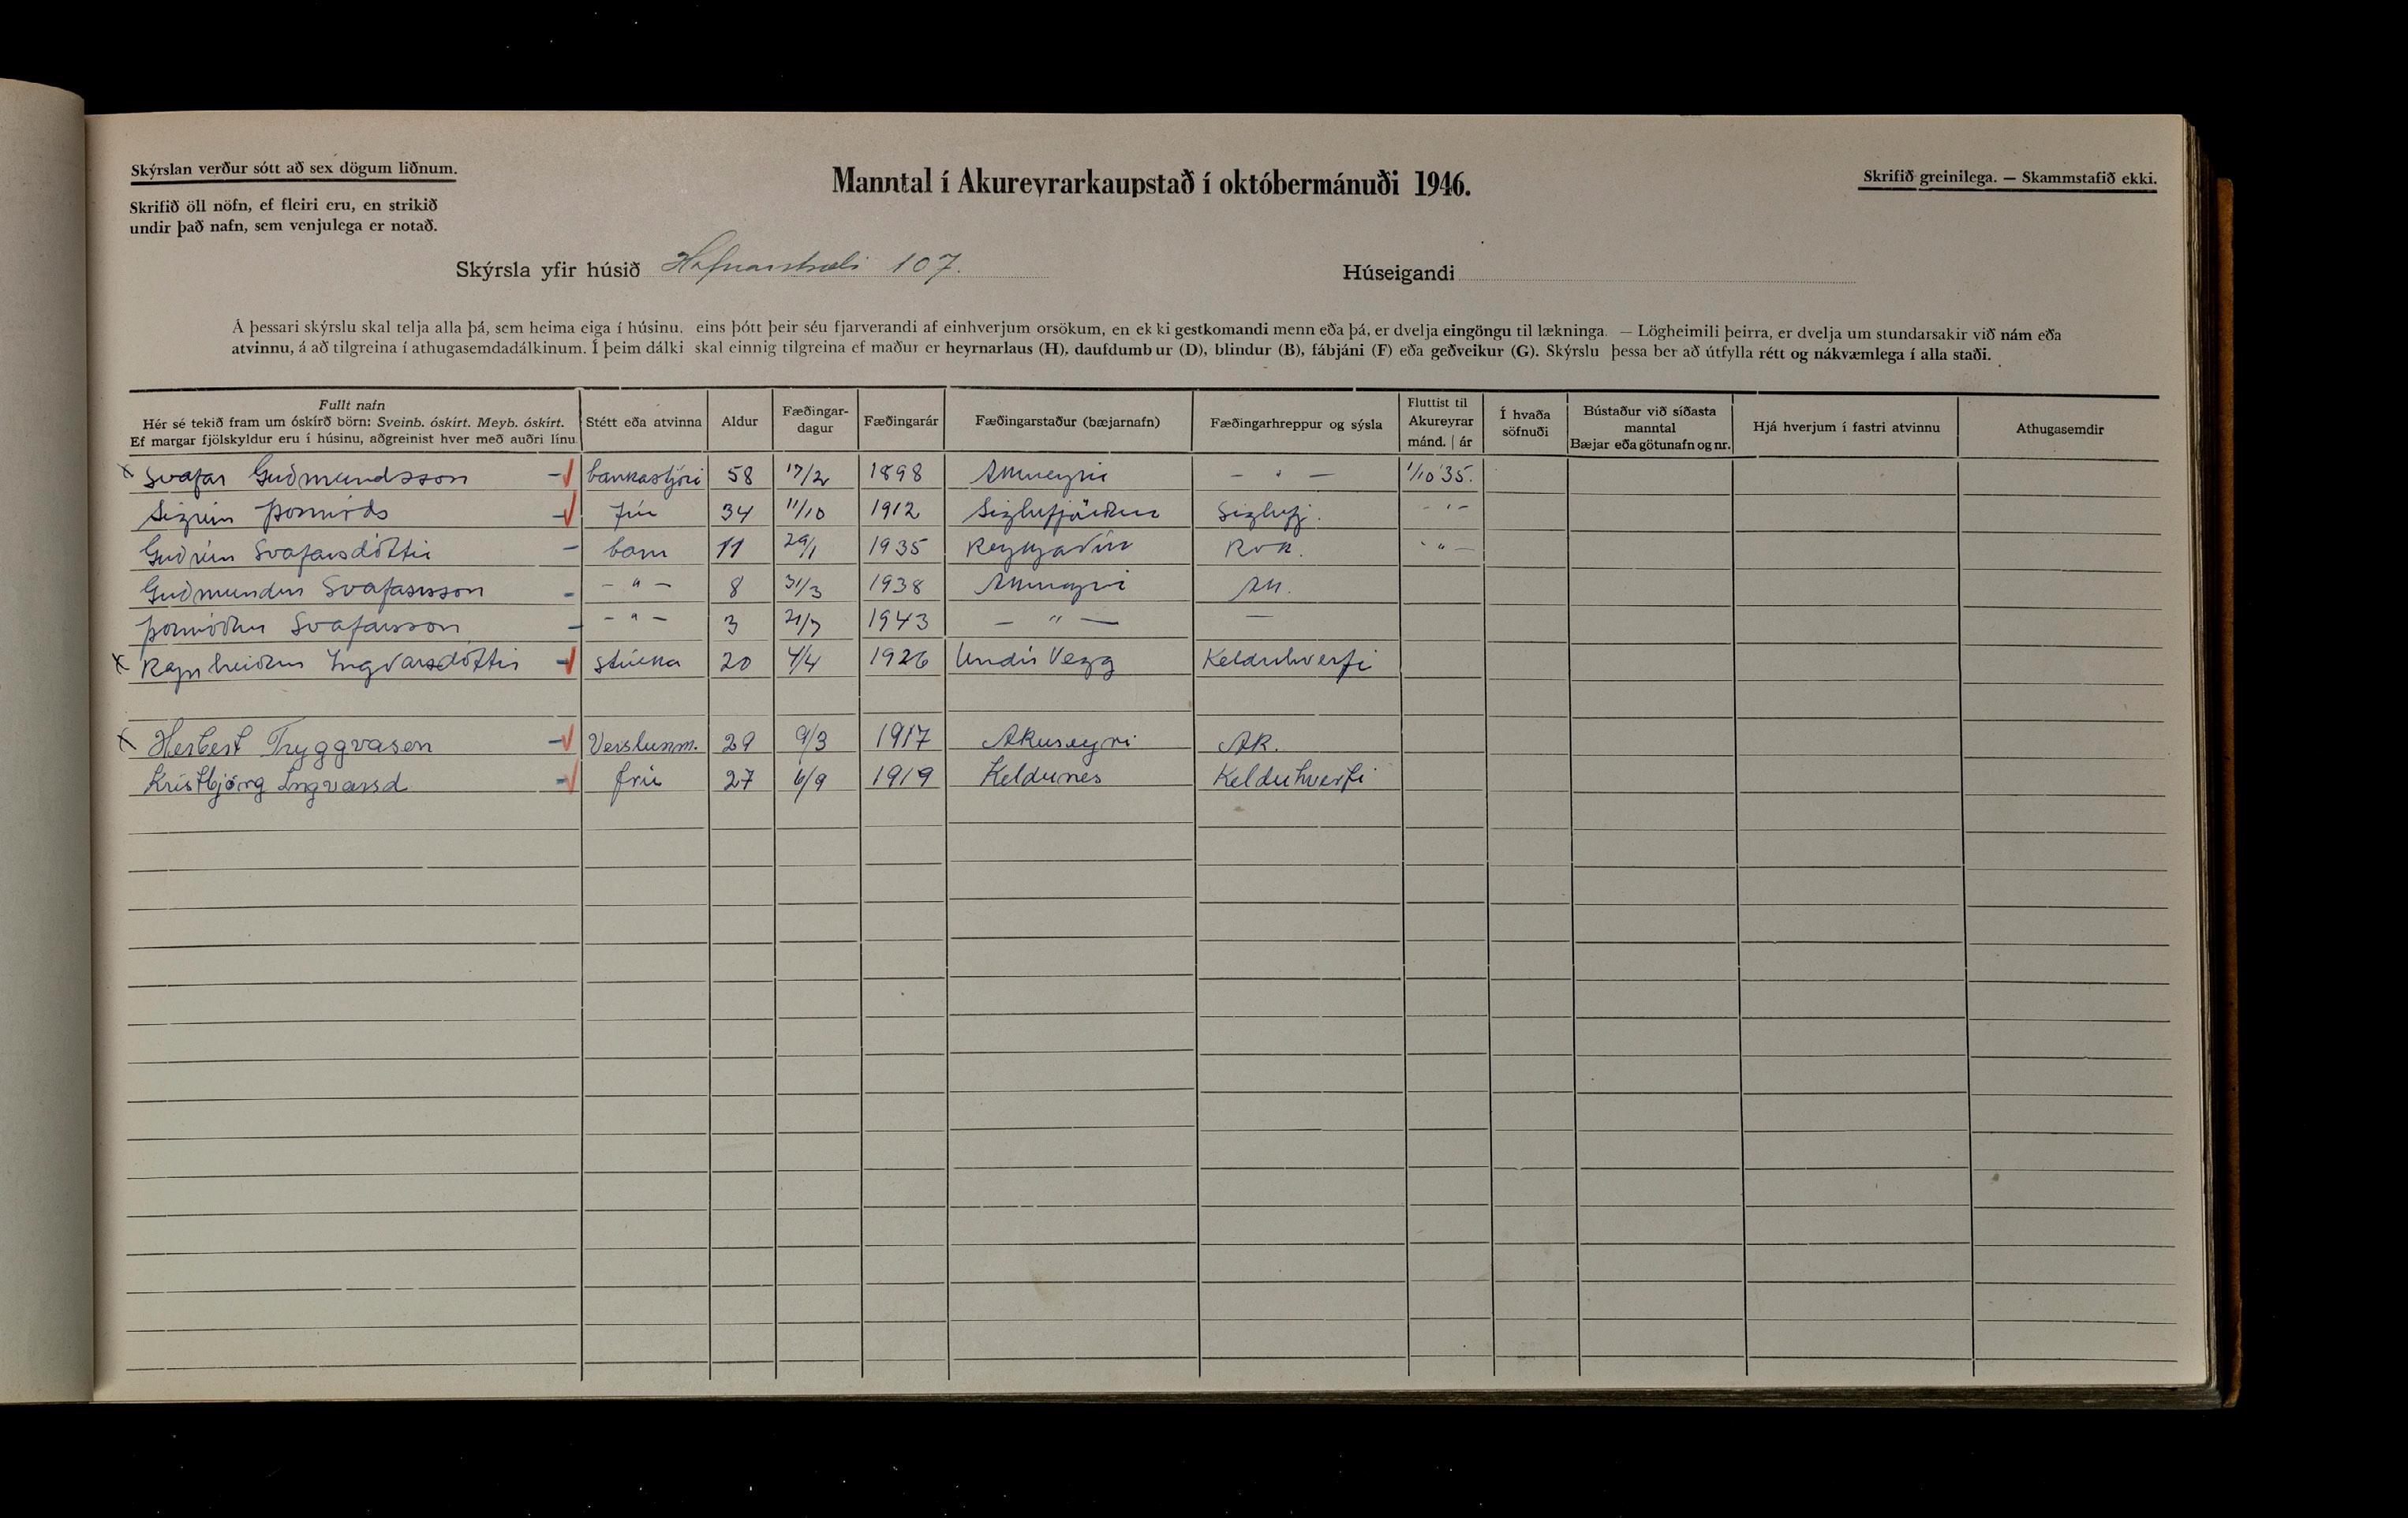 Skýrslan verður sótt að sex dögum liðnum.
Skrifið öll nöfn, ef fleiri eru, en strikið
undir það nafn, sem venjulega er notað.
Manntal í Akureyrarkaupstað í októbermánuði 1946.
Skrifið greinilega. — Skammstafið ekki.
Skýrsla yfir húsið Hafnarstræti 107.
Húseigandi
Á þessari skýrslu skal telja alla þá, sem heima eiga í húsinu, eins þótt þeir séu fjarverandi af einhverjum orsökum, en ekki gestkomandi menn eða þá, er dvelja eingöngu til lækninga. — Lögheimili þeirra, er dvelja um stundarsakir við nám eða
atvinnu, á að tilgreina í athugasemdadálkinum. Í þeim dálki skal einnig tilgreina ef maður er heyrnarlaus (H), daufdumbur (D), blindur (B), fábjáni (F) eða geðveikur (G). Skýrslu þessa ber að útfylla rétt og nákvæmlega í alla staði.
Fullt nafn
Hér sé tekið fram um óskírð börn: Sveinb. óskírt. Meyb. óskírt.
Ef margar fjölskyldur eru í húsinu, aðgreinist hver með auðri línu.
Stétt eða atvinna
Aldur
Fæðingar-
dagur
Fæðingarár
Fæðingarstaður (bæjarnafn)
Fæðingarhreppur og sýsla
Fluttist til
Akureyrar
mánd. | ár
Í hvaða
söfnuði
Bústaður við síðasta
manntal
Bæjar eða götunafn og nr.
Hjá hverjum í fastri atvinnu
Athugasemdir
x Svafar Guðmundsson - √ bankastjóri 58 17/2 1898 Akureyri — " — 1/10 '35.
Sigrún Þormóðs - √ frú 34 11/10 1912 Siglufjörður Siglufj. - " -
Guðrún Svafarsdóttir - barn 11 29/1 1935 Reykjavík Rvk. - " -
Guðmundur Svafarsson - - " - 8 31/3 1938 Akureyri Ak.
Þormóður Svafarsson - - " - 3 21/7 1943 — " — —
x Ragnheiður Ingvarsdóttir - √ stúlka 20 4/4 1926 Undir Vegg Kelduhverfi
x Herbert Tryggvason - √ Verslunm. 29 9/3 1917 Akureyri Ak.
Kristbjörg Ingvarsd - √ frú 27 6/9 1919 Keldunes Kelduhverfi